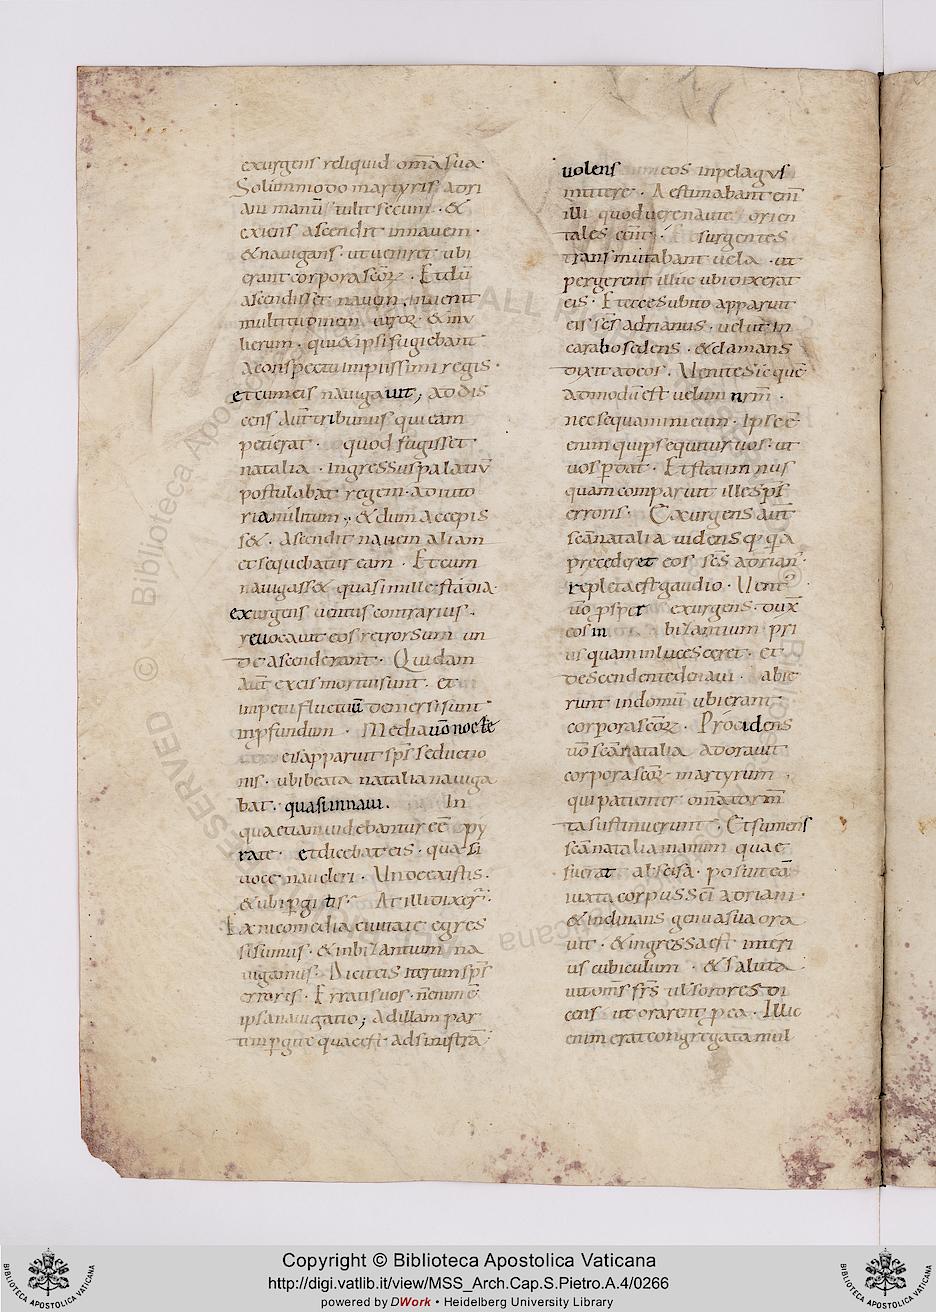 exurgens reliquid om̅a sua·
Solummodo martyris adri
ani manu̅ tulit secum · &
exiens ascendit in navem ·
& navigans · ut veniret ubi
erant corpora sc̅oꝝ · Et du̅
ascendisset navem invenit
multitudinem viroꝝ · & mu
lierum · qui & ipsi fugiebant
a conspectu impiissimi regis ·
et cum eis navigavit; Audis
cens aut̅ tribunus qui eam
petierat · quod fugisset
natalia · ingressus palatiu̅
postulabat regem adiuto
ria militum ; & dum accepis
s& · ascendit navem aliam
et sequebatur eam · Et cum
navigass& quasi mille stadia·
exurgens ventus contrarius ·
revocavit eos retrorsum un
de ascenderant · Quidam
aut̅ ex eis mortui sunt · et
impetu fluctuu̅ demersi sunt
in p̱fundum · Media u̅o nocte
eis apparuit sp̅s seductio
nis · ubi beata natalia naviga
bat · quasi in navi · In
qua etiam videbantur e̅e̅ py
rate · et dicebat eis · quasi
voce naucleri · Unde existis ·
& ubi ꝑgitis · At illi dixer̅ ·
Ex nicomedia civitate egres
si sumus · & in bizantium na
vigamus · Dicit eis iterum sp̅s
erroris · Erratis vos · n̅ enim e̅
ipsa navigatio; ad illam par
tem ꝑgite quae est · ad sinistra̅
volens eos in pelagus
mittere · Aestimabant eni̅
illi quod vere naute orien
tales e̅e̅nt · Et surgentes
transmutabant vela · ut
pergerent illuc ubi dixerat
eis · Et ecce subito apparuit
eis sc̅s adrianus · velut in
carabo sedens · & clamans
dixit ad eos · Venite sic que̅
admodu̅ est velum nr̅m ·
nec sequamini eum · Ipse e̅
enim qui ꝑsequitur vos · ut
vos ꝑdat · Et statim nus
quam comparuit ille sp̅s
erroris · Exurgens aut̅
sc̅a natalia videns q · q̅a
preceder& eos sc̅s adrian'
repleta est gaudio · Vent'
u̅o ꝓsper exurgens · dux̅
eos in bizantium pri
us quam inlucesceret · et
descendente de navi · abie
runt in domu̅ ubi erant
corpora sc̅oꝝ · Procidens
u̅o sc̅a natalia adoravit
corpora sc̅oꝝ martyrum ·
qui patienter om̅a torm̅
ta sustinuerunt · Et sumens
sc̅a natalia manum quae
fuerat abscisa · posuit ea̅
iuxta corpus sc̅i adriani ·
& inclinans genua sua ora
vit · & ingressa est interi
us cubiculum · & saluta
vit om̅s fr̅s vel sorores di
cens ut orarent ꝓ ea · Illic
enim erat congregata mul
Copyright © Biblioteca Apostolica Vaticana
http://digi.vatlib.it/view/MSS_Arch.Cap.S.Pietro.A.4/0266
powered by DWork • Heidelberg University Library